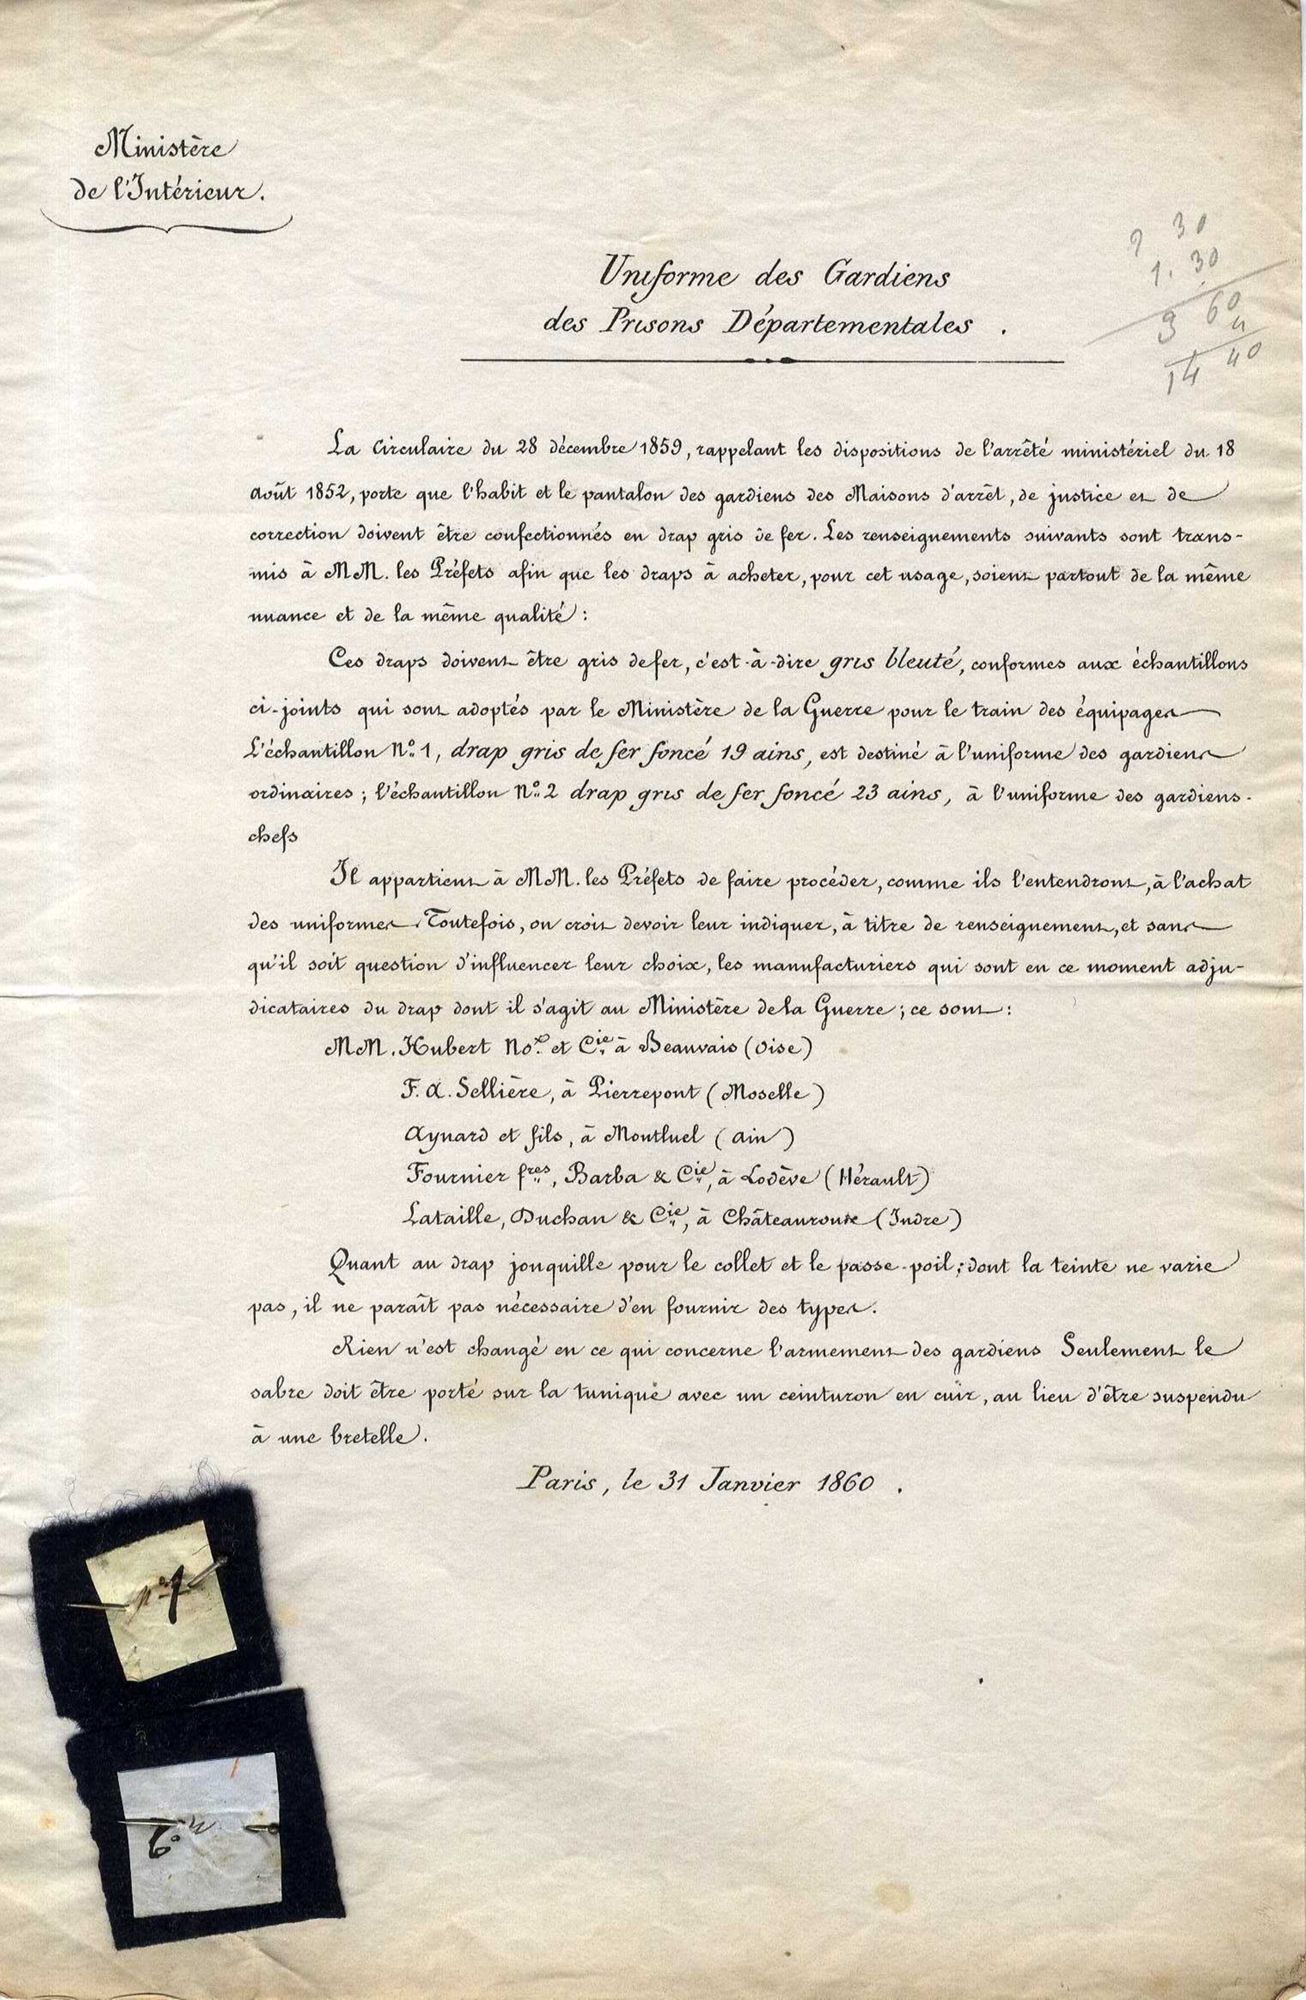 Ministère
de l'Intérieur.
2 30
1. 30
3 60
4
14 40
Uniforme des Gardiens
des Prisons Départementales.
La Circulaire du 28 décembre 1859, rappelant les dispositions de l'arrêté ministériel du 18
Août 1852, porte que l'habit et le pantalon des gardiens des Maisons d'arrêt, de justice et de
correction doivent être confectionnés en drap gris de fer. Les renseignements suivants sont trans-
mis à MM. les Préfets afin que les draps à acheter, pour cet usage, soient partout de la même
nuance et de la même qualité :
Ces draps doivent être gris de fer, c'est-à-dire gris bleuté, conformes aux échantillons
ci-joints qui sont adoptés par le Ministère de la Guerre pour le train des équipages
L'échantillon N° 1, drap gris de fer foncé 19 ains, est destiné à l'uniforme des gardiens
ordinaires ; l'échantillon N° 2 drap gris de fer foncé 23 ains, à l'uniforme des gardiens-
chefs
Il appartient à MM. les Préfets de faire procéder, comme ils l'entendront, à l'achat
des uniformes. Toutefois, on croit devoir leur indiquer, à titre de renseignement, et sans
qu'il soit question d'influencer leur choix, les manufacturiers qui sont en ce moment adju-
dicataires du drap dont il s'agit au Ministère de la Guerre ; ce sont :
MM. Hubert et Cie à Beauvais (Oise)
F. A. Sellière, à Pierrepont (Moselle)
Aynard et fils, à Montluel (Ain)
Fournier fres, Barba & Cie, à Lodève (Hérault)
Lataille, Duchan & Cie, à Châteauroux (Indre)
Quant au drap jonquille pour le collet et le passe-poil ; dont la teinte ne varie
pas, il ne paraît pas nécessaire d'en fournir des types.
Rien n'est changé en ce qui concerne l'armement des gardiens Seulement le
sabre doit être porté sur la tunique avec un ceinturon en cuir, au lieu d'être suspendu
à une bretelle.
Paris, le 31 Janvier 1860.
n° 1
n° 2